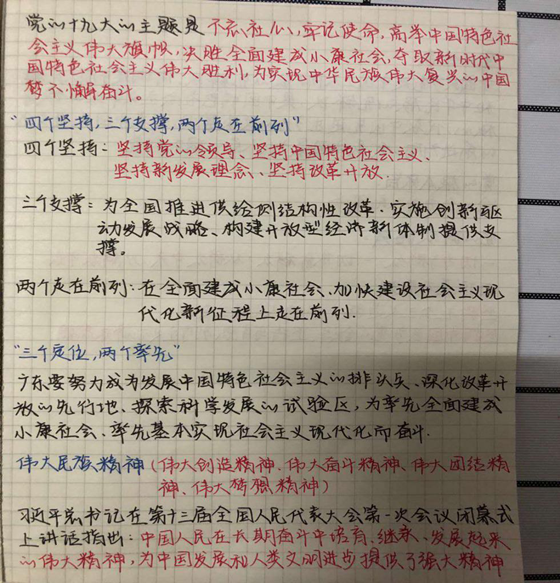 党的十九大的主题是 不忘初心,牢记使命,高举中国特色社
会主义伟大旗帜,决胜全面建成小康社会,夺取新时代中
国特色社会主义伟大胜利,为实现中华民族伟大复兴的中国
梦不懈奋斗。
"四个坚持,三个支撑,两个走在前列"
四个坚持:坚持党的领导、坚持中国特色社会主义、
坚持新发展理念、坚持改革开放.
三个支撑:为全国推进供给侧结构性改革.实施创新驱
动发展战略、构建开放型经济新体制提供支
撑。
两个走在前列:在全面建成小康社会、加快建设社会主义现
代化新征程上走在前列.
"三个定位,两个率先"
广东要努力成为发展中国特色社会主义的排头兵、深化改革开
放的先行地、探索科学发展的试验区,为率先全面建成
小康社会、率先基本实现社会主义现代化而奋斗.
伟大民族精神(伟大创造精神、伟大奋斗精神、伟大团结精
神、伟大梦想精神)
习近平总书记在第十三届全国人民代表大会第一次会议闭幕式
上讲话指出:中国人民在长期奋斗中培育、继承、发展起来
的伟大精神,为中国发展和人类文明进步提供了强大精神